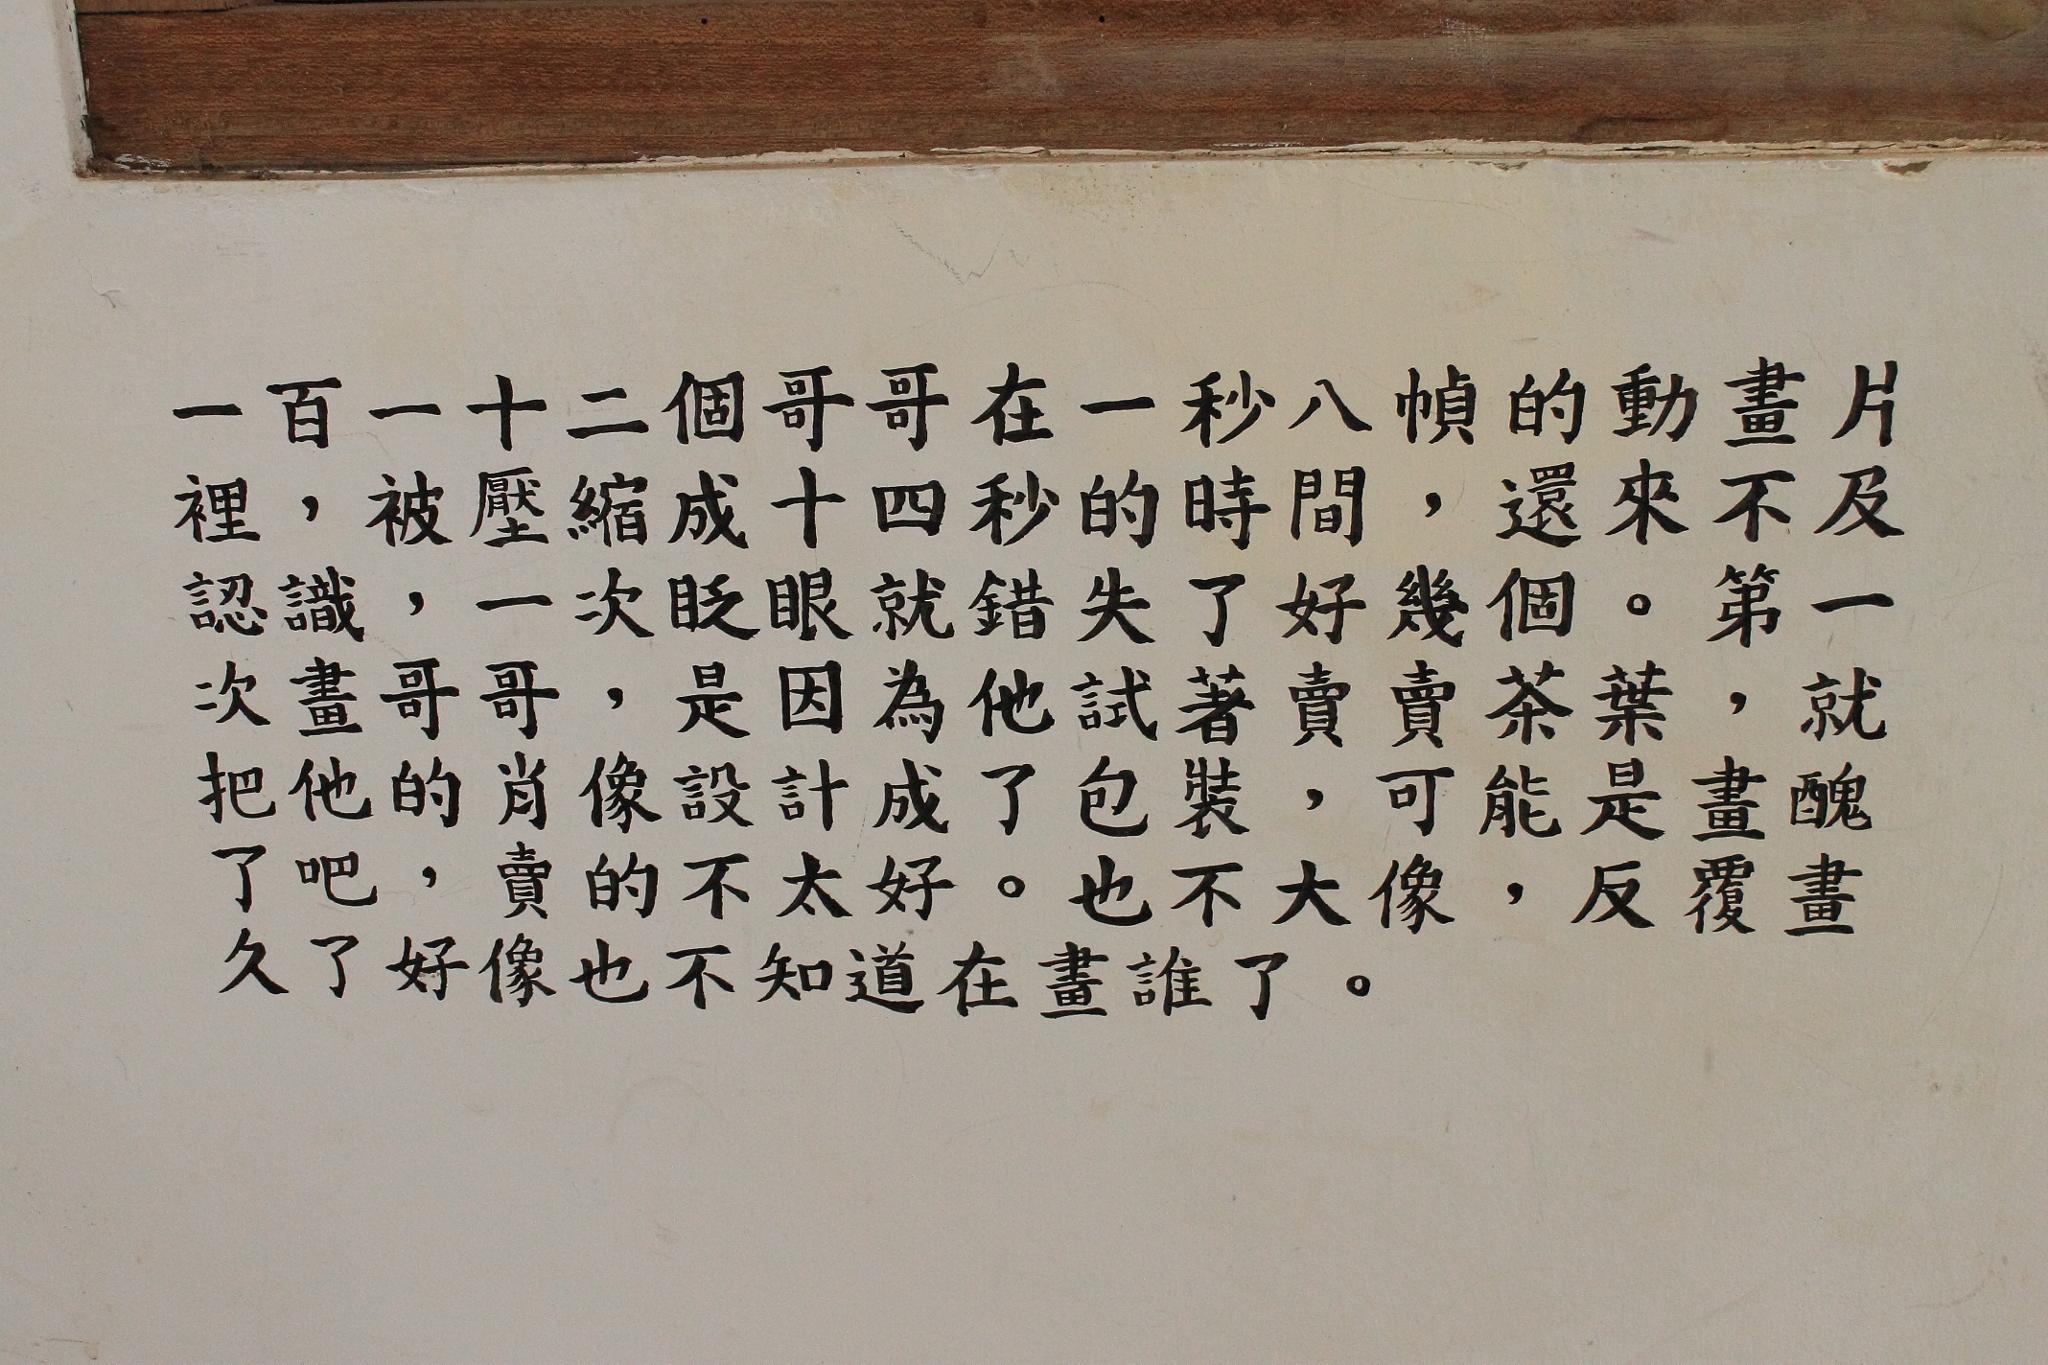 一百一十二個哥哥在一秒八幀的動畫片
裡，被壓縮成十四秒的時間，還來不及
認識，一次眨眼就錯失了好幾個。第一
次畫哥哥，是因為他試著賣賣茶葉，就
把他的肖像設計成了包裝，可能是畫醜
了吧，賣的不太好。也不大像，反覆畫
久了好像也不知道在畫誰了。